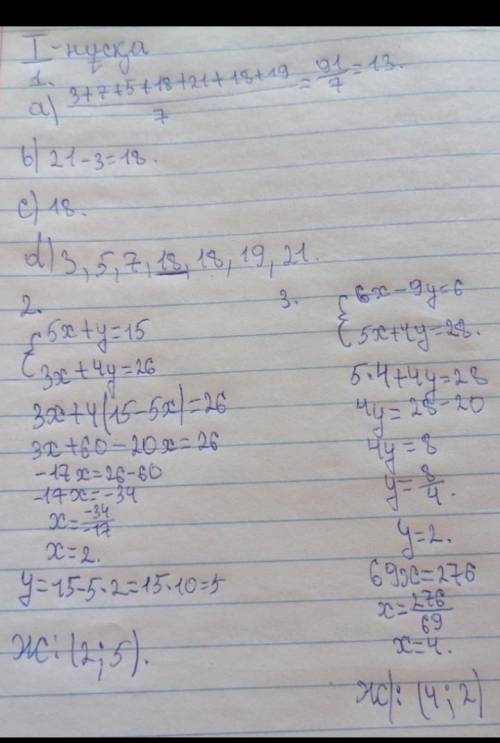 I-нұсқа
1.
a) 3+7+5+18+21+18+19/7 = 91/7 = 13.
b) 21-3=18.
c) 18.
d) 3, 5, 7, 18, 18, 19, 21.
2.
{5x+y=15
3x+4y=26
3x+4(15-5x)=26
3x+60-20x=26
-17x=26-60
-17x=-34
x=-34/-17
x=2.
y=15-5·2=15·10=5
Ж: (2; 5).
3.
{6x-9y=6
5x+4y=28.
5·4+4y=28
4y=28-20
4y=8
y=8/4.
y=2.
69x=276
x=276/69
x=4.
Ж: (4; 2)